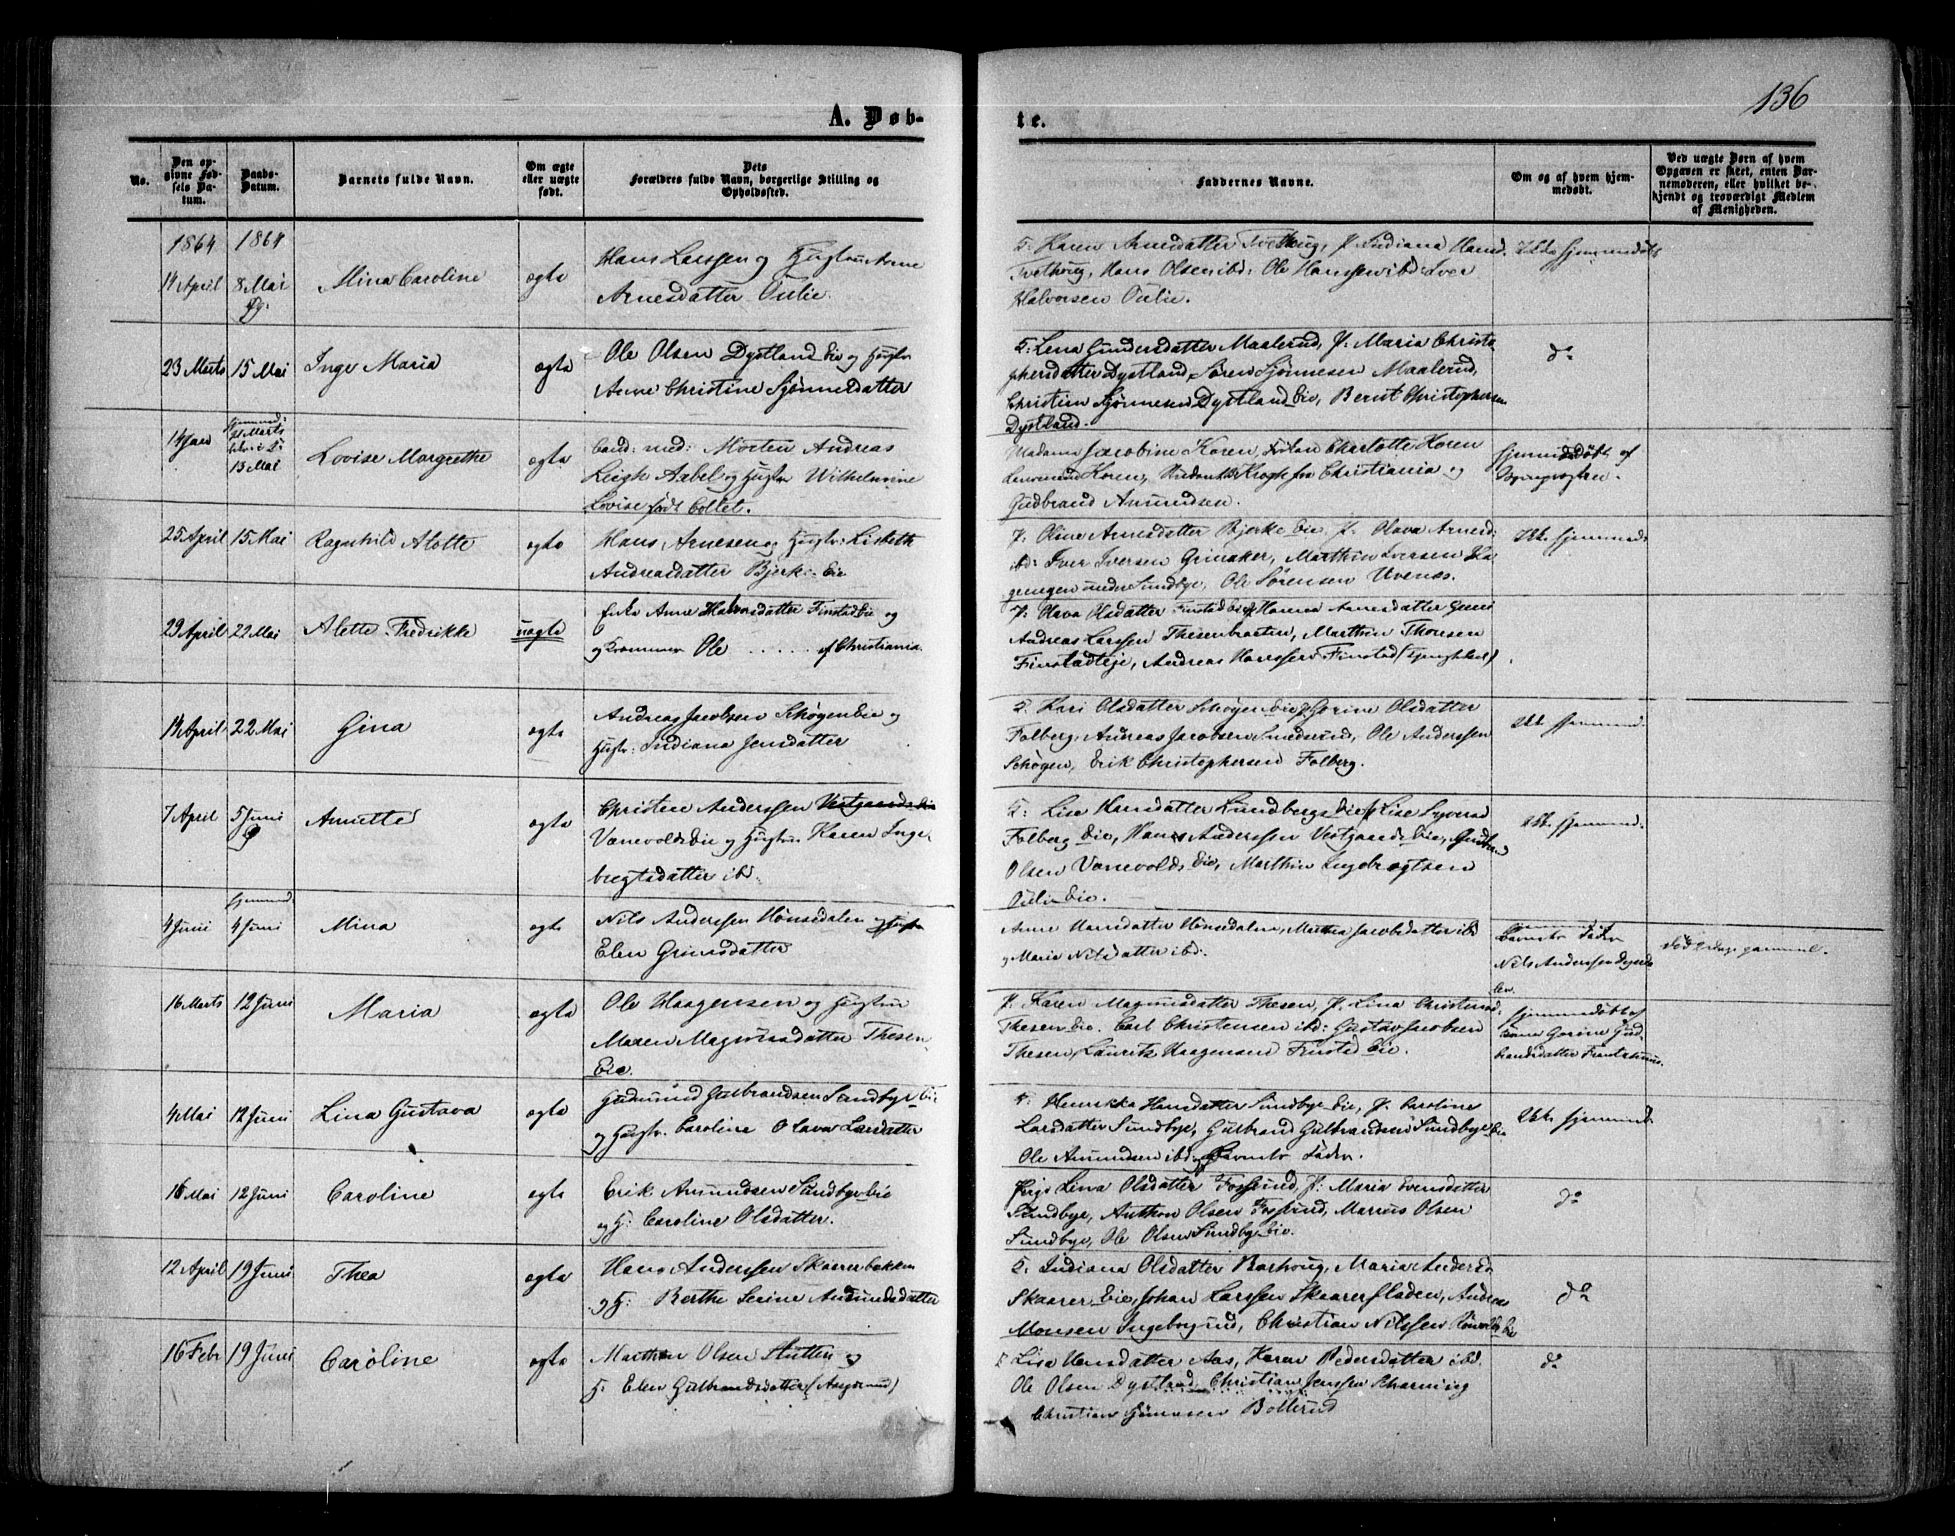 136
A. Døb-
te.
No.
Den op-
givne Fød-
sels Da-
tum.
Daabs-
Datum.
Barnets fulde Navn.
Om ægte
eller uægte
født.
Dets
Forældres fulde Navn, borgerlige Stilling og
Opholdssted.
Faddernes Navne.
Om og af hvem hjem-
medøbt.
Ved uægte Børn af hvem
Opgaven er skeet, enten Bar-
nemoderen, eller hvilket be-
kjendt og troværdigt Medlem
af Menigheden.
1864 1864
14 April 8 Mai Mina Caroline ægte
Hans Larssen og Hustru Anne
Arnesdatter Oulie.
Karen Arnesdatter Tvethoug, J. Indiana Hansd.
Tvethoug, Hans Olsen ibd: Ole Hanssen ibd: Iver
Halvorsen Oulie.
Ikke hjemmedøbt
23 Marts 15 Mai Inge Maria ægte
Ole Olsen Dystland Eie og Hustr
Anne Christine Sjønnesdatter
Lena Gundersdatter Maalerud, J. Maria Christo-
phersdatter Dystland, Søren Sjønnesen Maalerud,
Christian Sjønnesen Dystland Eie, Bernt Christophersen
Dystland.
do
14 Jan 21 Marts
13 Mai
Lovise Margrethe ægte
Cand: med: Morten Andreas
Leigh Aabel og Hustr Wilhelmine
Lovise født Collet.
Madame Jacobine Koren, Frøken Charlotte Koren
Koren, Student Krogh fra Christiania og
Gudbrand Amundsen.
Hjemmedøbt af
25 April 15 Mai Ragnhild Alette ægte
Hans Arnesen og Hustr: Lisbeth
Andreasdatter Bjerke Eie
J. Oline Arnesdatter Bjerke Eie J. Olava Arnesd:
ibd: Iver Iversen Grinaker, Marthin Iversen Ha-
gengen under Sundbye, Ole Sørensen Uvenas.
Ikke hjemmed:
29 April 22 Mai Alette Fredrikke uægte
Enke Anne Halvorsdatter Finstad Eie og
Ole . . . . . af Christiania.
J. Olava Olsdatter Finstad Eie J. Hanna Arnesdatter
Andreas Larssen Thesenbraaten, Marthin Thonsen
Finstadeie, Andreas Hanssen Finstad
14 April 22 Mai Gina ægte
Andreas Jacobsen Schøgen Eie og
Hustr: Indiana Jensdatter
Kari Olsdatter Schøgen Eie J. Gorine Olsdatter
Folberg, Andreas Jacobsen Smederud, Ole Anderssen
Schøgen, Erik Christophersen Folberg.
Ikke hjemmed.
7 April 5 Juni Annette ægte
Christen Anderssen Vestgaards Eie
Vanevolds Eie og Hustru Karen Inge-
bregtsdatter ibd.
Lise Hansdatter Lundbergs Eie J. Lise Syversd
Folberg Eie, Hans Anderssen Vestgaards Eie, Gudbrand
Olsen Vanevolds Eie, Marthin Ingebregtsen
Oulie Eie.
Ikke hjemmed.
Hjemmed
4 Juni 4 Juni Mina ægte
Nils Anderssen Hønsedalen og Hustr
Elen Grimsdatter
Anne Hansdatter Hønsedalen, Mathea Jacobsdatter ibd
og Maria Nilsdatter ibd.
Barnets Fader
Nils Anderssen
gammel.
16 Marts 12 Juni Maria ægte
Ole Haagensen og Hustru
Maren Magnusdatter Thesen-
Eie
J. Karen Magnusdatter Thesen, J. Lina Christensd.
Thesen Eie. Carl Christensen ibd: Gustav Jacobsen
Thesen, Lauritz Haagensen Finstad Eie.
Hjemmedøbt af
Gorine Gud-
brandsdatter
4 Mai 12 Juni Lina Gustava ægte
Gudmund Gulbrandsen Sundbye Eie
og Hustr. Caroline Olava Larsdatter
Henrikka Hansdatter Sundbye Eie, J. Caroline
Larsdatter Sundbye, Gulbrand Gulbrandsen Sundbye Eie
Ole Amundsen ibd og Barnets Fader.
Ikke hjemmed
16 Mai 12 Juni Caroline ægte
Erik Amundsen Sundbye Eie
og H: Caroline Olsdatter.
Pige Lena Olsdatter Fossund, J: Maria Evensdatter
Sundbye, Anthon Olsen Fossund, Marius Olsen
Sundbye, Ole Olsen Sundbye Eie.
do
12 April 19 Juni Thea ægte
Hans Anderssen Skaarerbakken
og H: Berthe Serine Amundsdatter
Indiana Olsdatter Barhoug, Maria Andersd
Skaarer Eie, Johan Larssen Skaarerfladen, Andreas
Monsen Ingeborgrud, Christian Nilssen
do
16 Febr 19 Juni Caroline ægte
Marthin Olsen Slutten og
H. Elen Gulbrandsdatter
Lisa Hansdatter Aas, Karen Pedersdatter ibd.
Ole Olsen Dystland, Christian Jenssen Scharning
Christian Bollerud
do